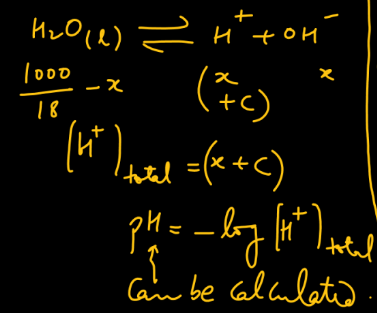 H₂O(l) ⇌ H⁺ + OH⁻
1000/18 - x (x + c) x
[H⁺]total = (x + c)
pH = - log [H⁺]total
↑
Can be calculated.